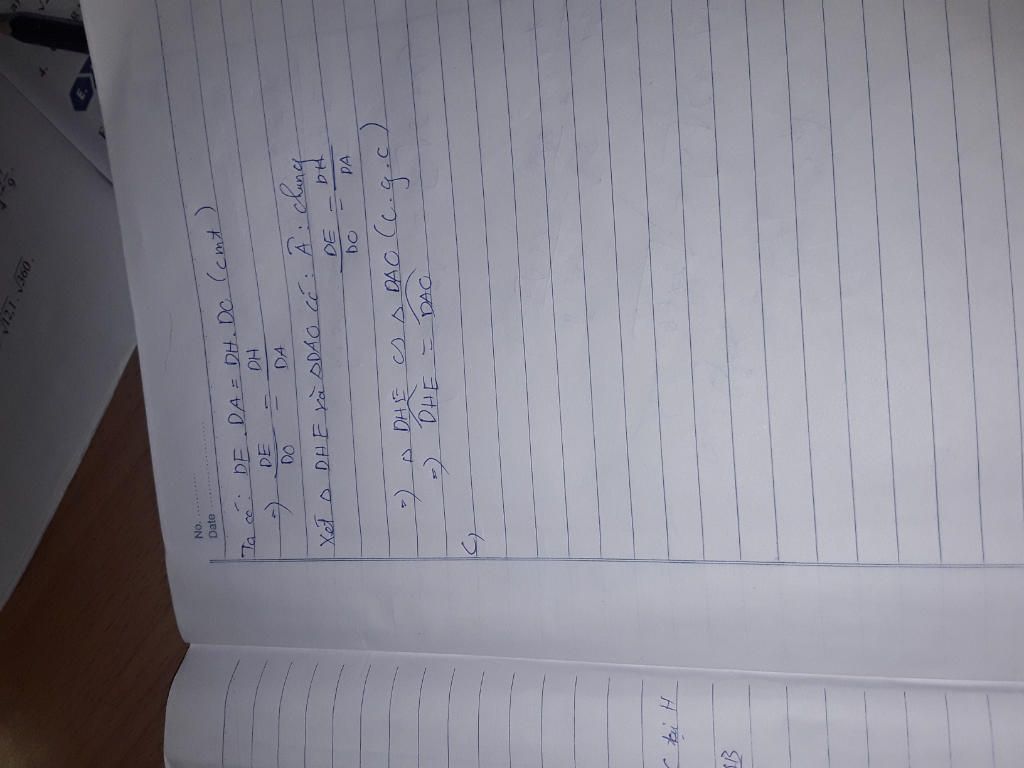 No. ................
Date ................
Ta có: DE . DA = DH . DO (cmt)
=) DE/DO = DH/DA
Xét △ DHE và △DAO có: Â: chung
DE/DO = DH/DA
=) △ DHE ∽ △ DAO (c.g.c)
=) DHE = DAO
C,
tại H
√121 . √360 .